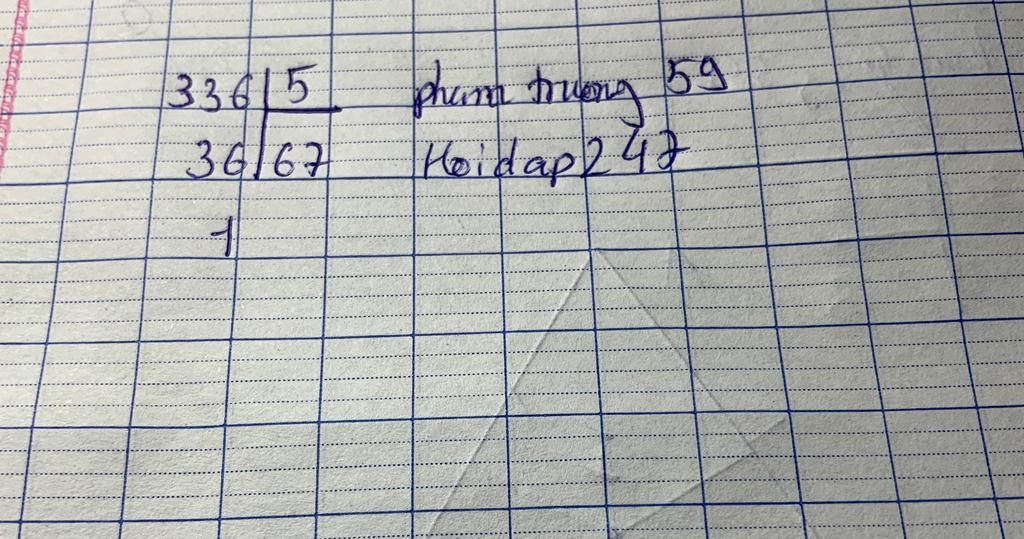 336 5 phamtruong 59
36 67 Hoidap247
1